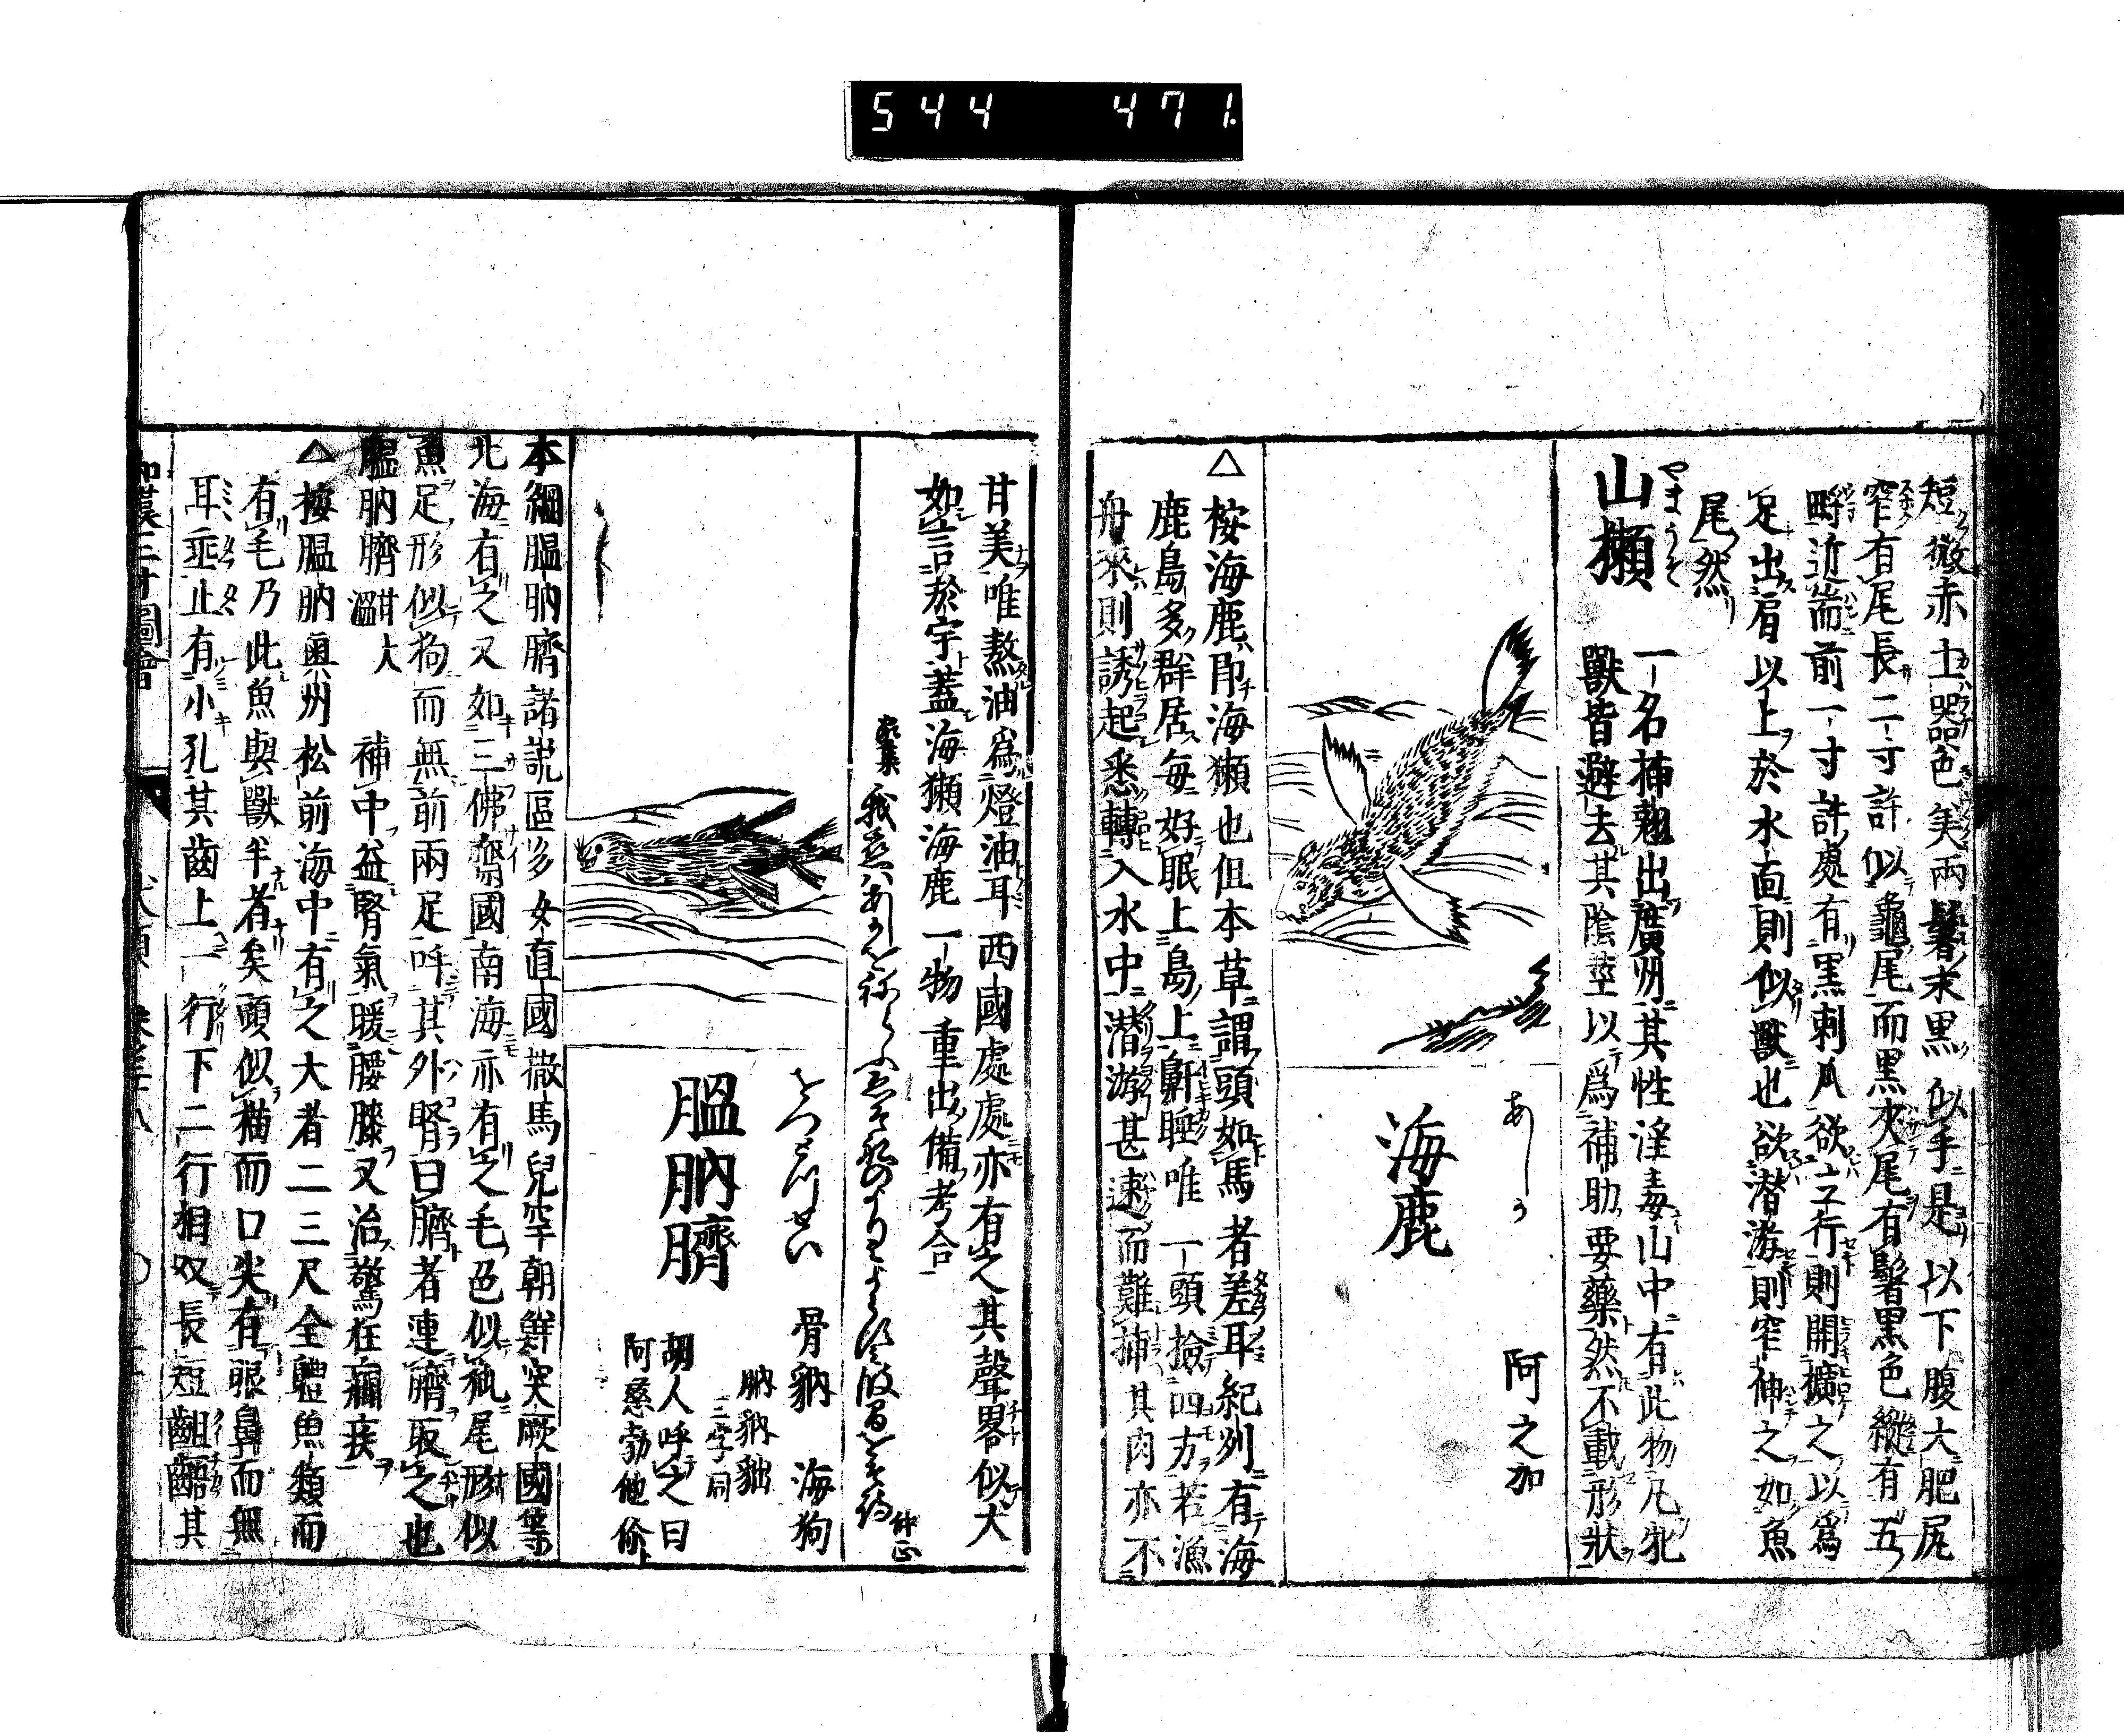 544 471.
短微赤土器色矣兩鬢末黑似手是以下腹大肥尻
窄有尾長二寸許似龜尾而黑夾尾有鬐黑色縱有五
畤近耑前一寸許處有黑刺爪欲立行則開擴之以爲
足出肩以上於水面則似獸也欲潜游則窄伸之如魚
尾然
山獺
やまうそ
一名插翹出廣州其性淫毒山中有此物凡牝
獸皆避去其陰莖以爲補助要藥然不載形狀
あしか
海鹿
阿之加
△按海鹿卽海獺也但本草謂頭如馬者差耳紀州有海
鹿島多群居每好眠上島上鼾睡唯一頭撿四方若漁
舟來則誘起悉轉入水中潜游甚速而難捕其肉亦不
甘美唯熬油爲燈油耳西國處處亦有之其聲畧似犬
如言於宇蓋海獺海鹿一物重出備考合
仲正
をつとつせい
膃肭臍
骨貀 海狗
肭貀䝟
三字同
胡人呼之曰
阿慈勃他你
本綱膃肭臍諸說區多女直國撒馬兒罕朝鮮突厥國等
北海有之又如三佛齊國南海亦有之毛色似狐尾形似
魚足形似狗而無前兩足呼其外腎曰臍者連臍取之也
膃肭臍 甘大溫 補中益腎氣暖腰膝又治驚狂癇疾
△按膃肭奥州松前海中有之大者二三尺全體魚類而
有毛乃此魚與獸半者矣頭似猫而口尖有眼鼻而無
耳垂止有小孔其齒上一行下二行相双長短齟齬其
和漢三才圖會